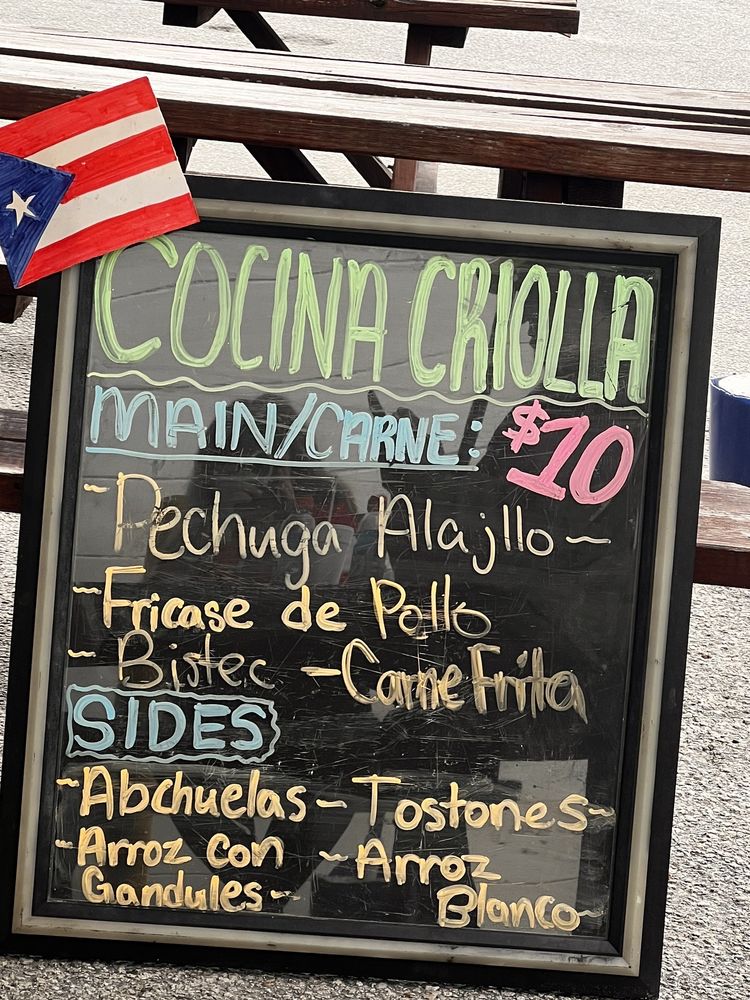 COCINA CRIOLLA
MAIN/CARNE: $10
~Pechuga Alajllo~
~Fricase de Pollo
~ Bistec -Carne Frita
SIDES
~Abchuelas~ Tostones~
~Arroz con ~Arroz
Gandules~ Blanco~